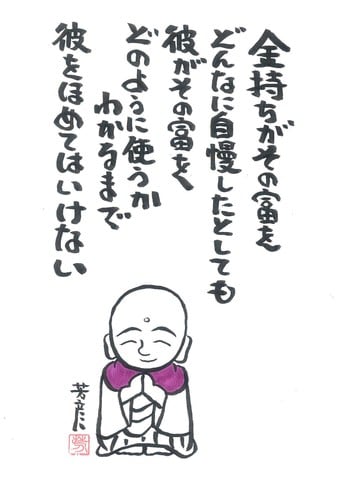 金持ちがその富を
どんなに自慢したとしても
彼がその富を
どのように使うか
わかるまで
彼をほめてはいけない
芳彦